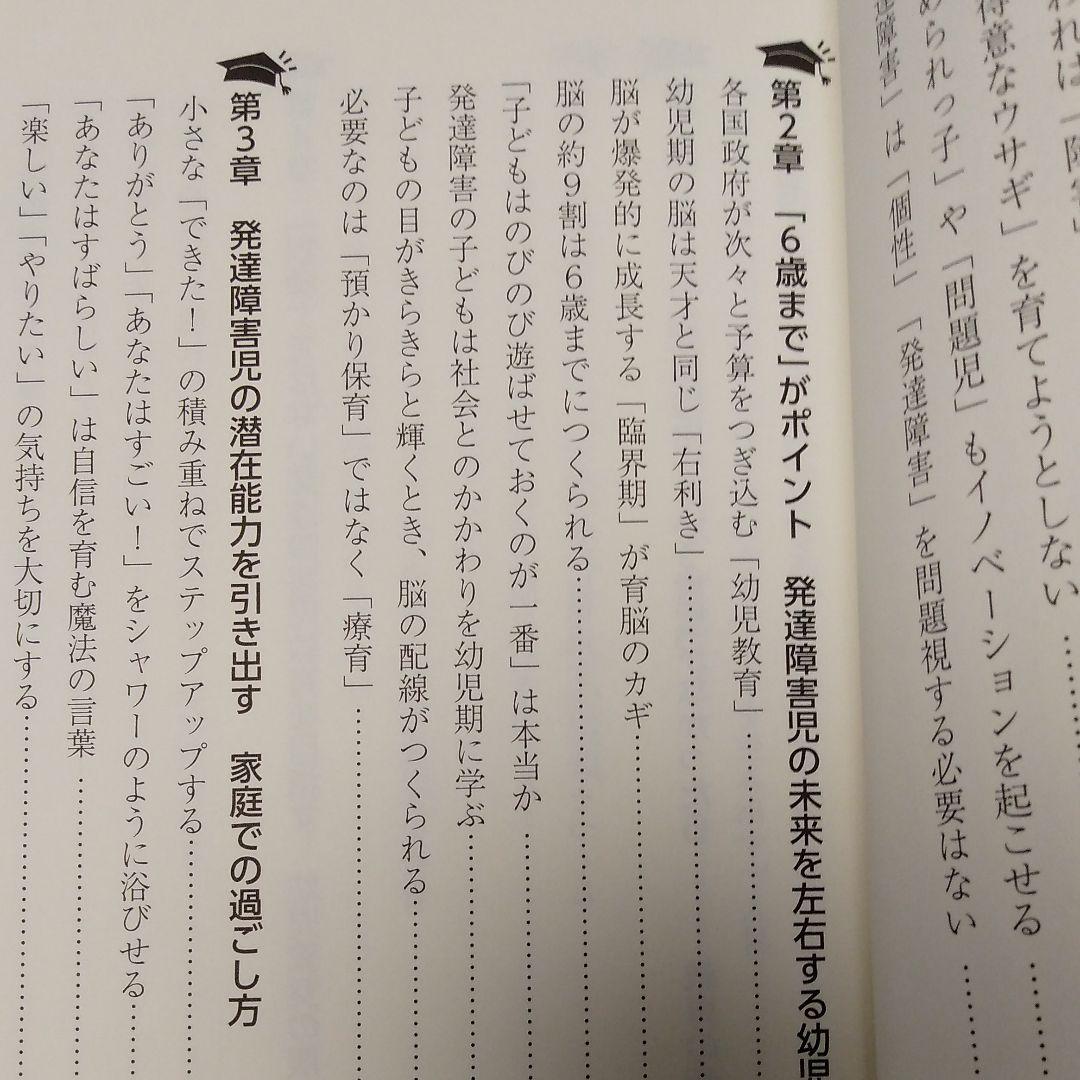 われは「障害」
得意なウサギ」を育てようとしない…………
められっ子」や「問題児」もイノベーションを起こせる……
達障害」は「個性」 「発達障害」を問題視する必要はない……
第2章 「6歳まで」がポイント 発達障害児の未来を左右する幼児
各国政府が次々と予算をつぎ込む「幼児教育」…………
幼児期の脳は天才と同じ「右利き」…………
脳が爆発的に成長する「臨界期」が育脳のカギ…………
脳の約9割は6歳までにつくられる…………
「子どもはのびのび遊ばせておくのが一番」は本当か…………
発達障害の子どもは社会とのかかわりを幼児期に学ぶ…………
子どもの目がきらきらと輝くとき、脳の配線がつくられる…………
必要なのは「預かり保育」ではなく「療育」…………
第3章 発達障害児の潜在能力を引き出す 家庭での過ごし方
小さな「できた！」の積み重ねでステップアップする…………
「ありがとう」「あなたはすごい！」をシャワーのように浴びせる……
「あなたはすばらしい」は自信を育む魔法の言葉…………
「楽しい」「やりたい」の気持ちを大切にする…………